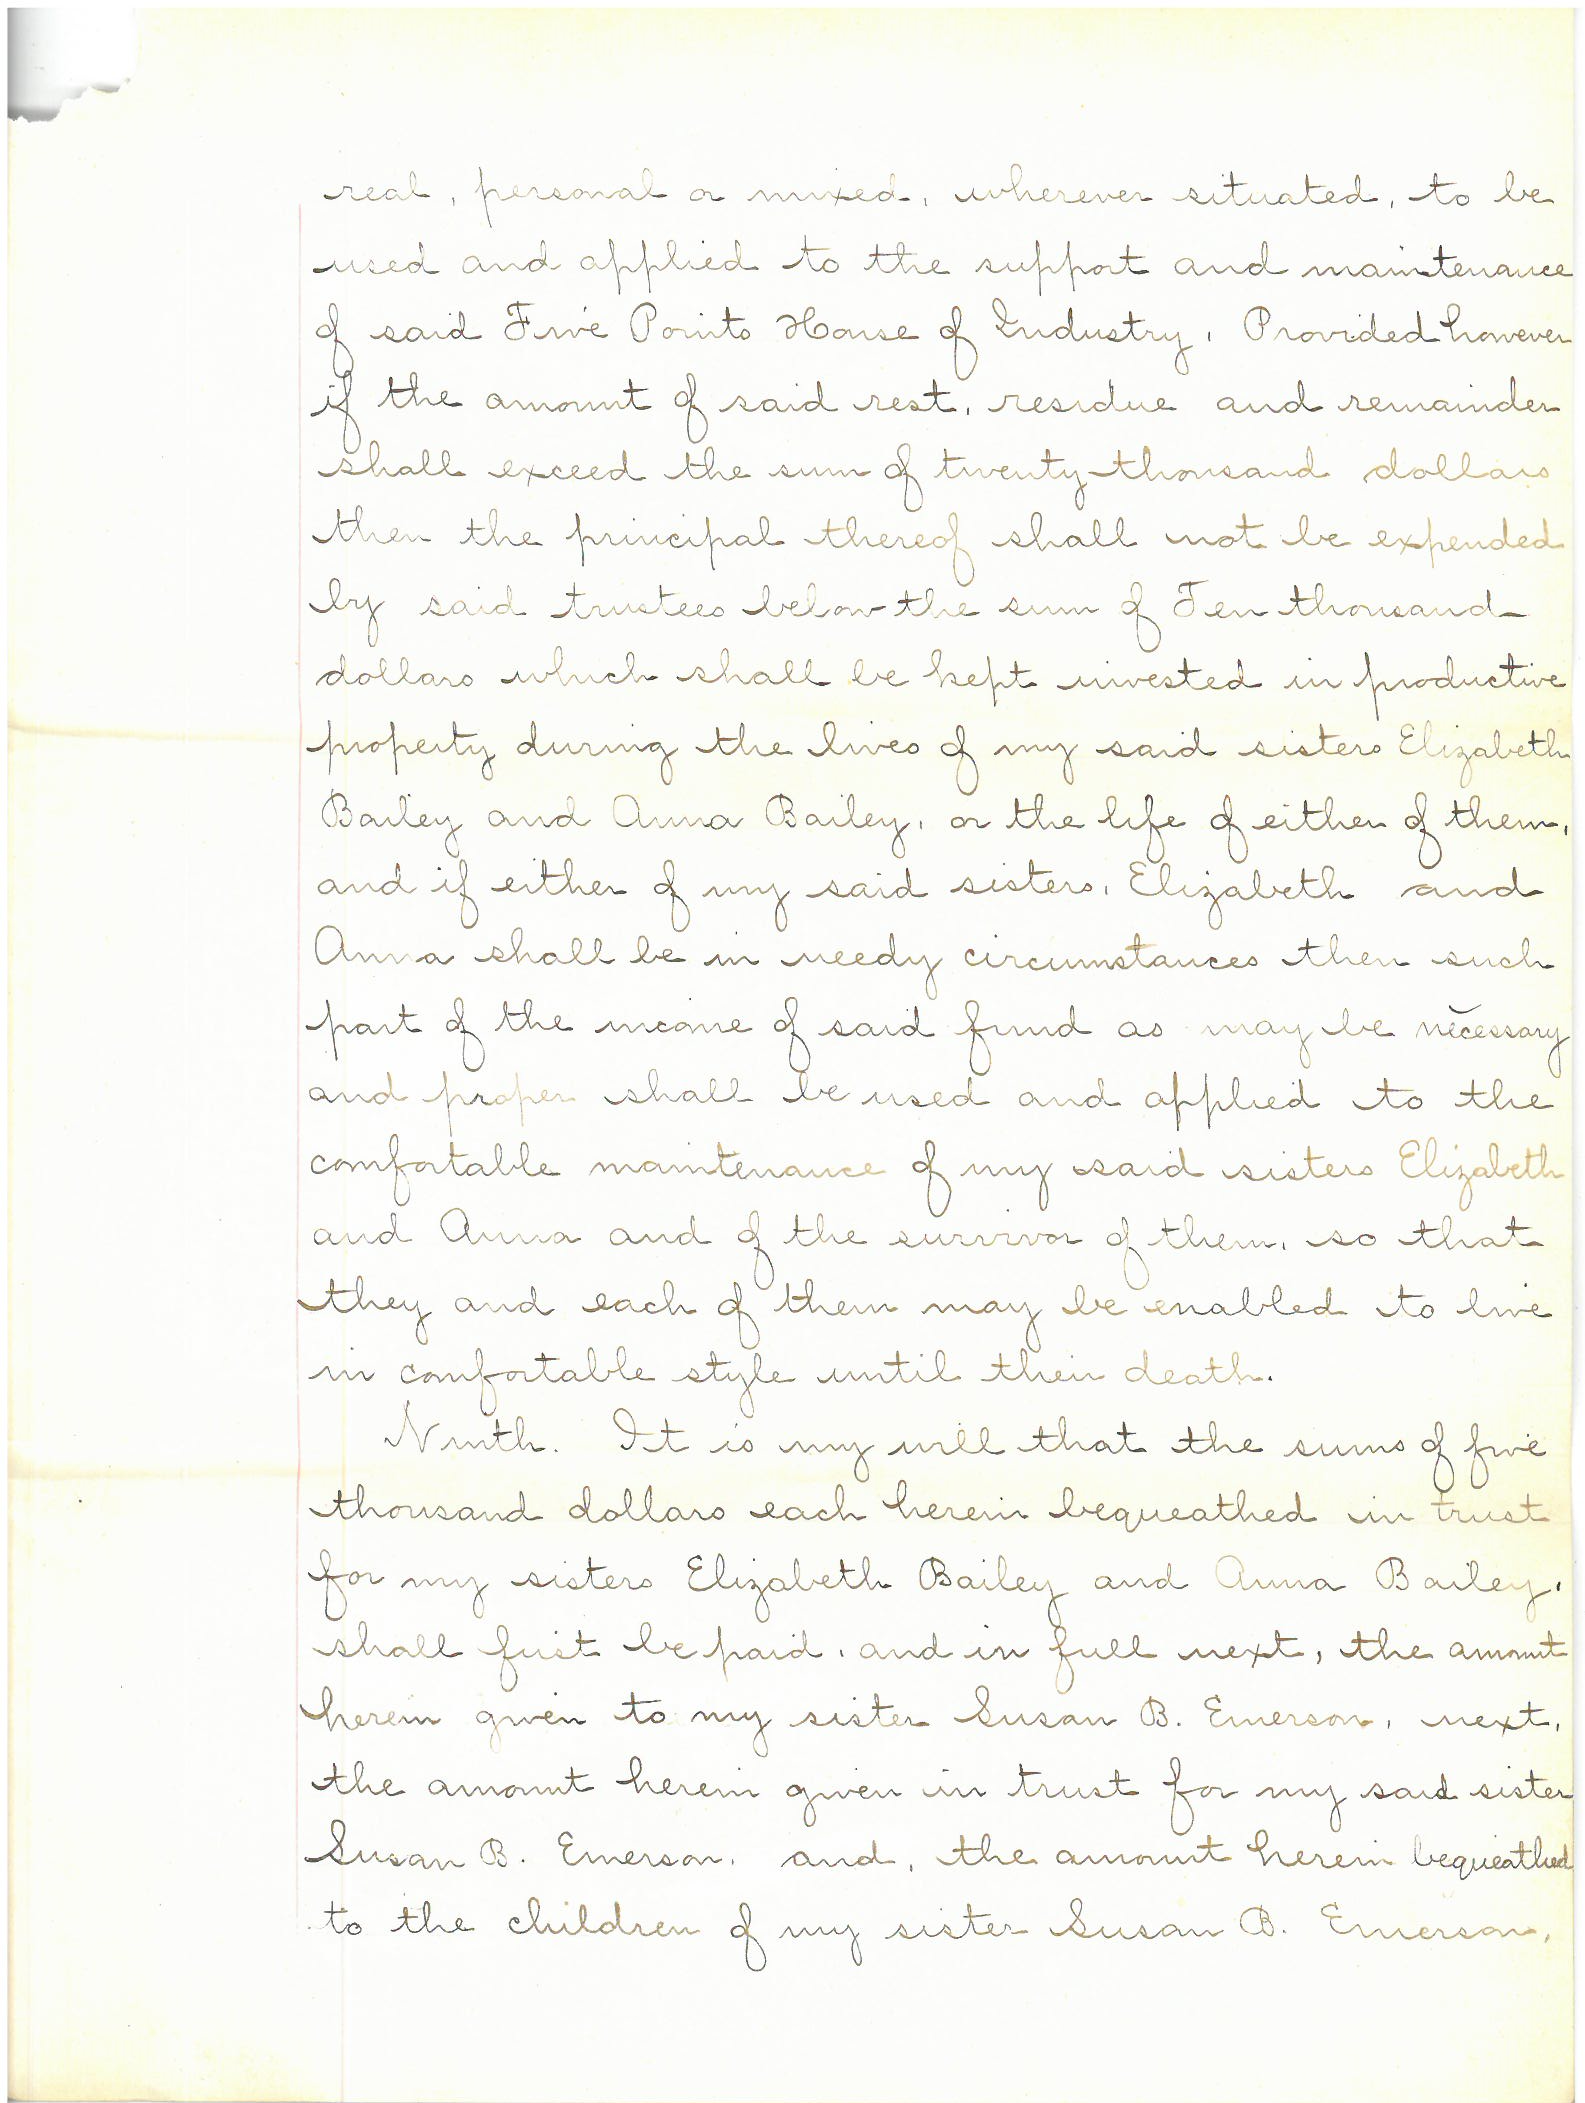 real, personal or mixed, wherever situated, to be
used and applied to the support and maintenance
of said Five Points House of Industry, Provided however
if the amount of said rest, residue and remainder
shall exceed the sum of twenty thousand dollars
then the principal thereof shall not be expended
by said trustees below the sum of Ten thousand
dollars which shall be kept invested in productive
property during the lives of my said sisters Elizabeth
Bailey and Anna Bailey, or the life of either of them,
and if either of my said sisters, Elizabeth and
Anna shall be in needy circumstances then such
part of the income of said fund as may be necessary
and proper shall be used and applied to the
comfortable maintenance of my said sisters Elizabeth
and Anna and of the survivor of them, so that
they and each of them may be enabled to live
in comfortable style until their death.
Ninth. It is my will that the sums of five
thousand dollars each herein bequeathed in trust
for my sisters Elizabeth Bailey and Anna Bailey,
shall first be paid, and in full next, the amount
herein given to my sister Susan B. Emerson, next,
the amount herein given in trust for my said sister
Susan B. Emerson, and, the amount herein bequeathed
to the children of my sister Susan B. Emerson,